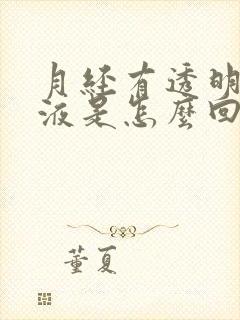 月经有透明
液是怎麼回
董夏